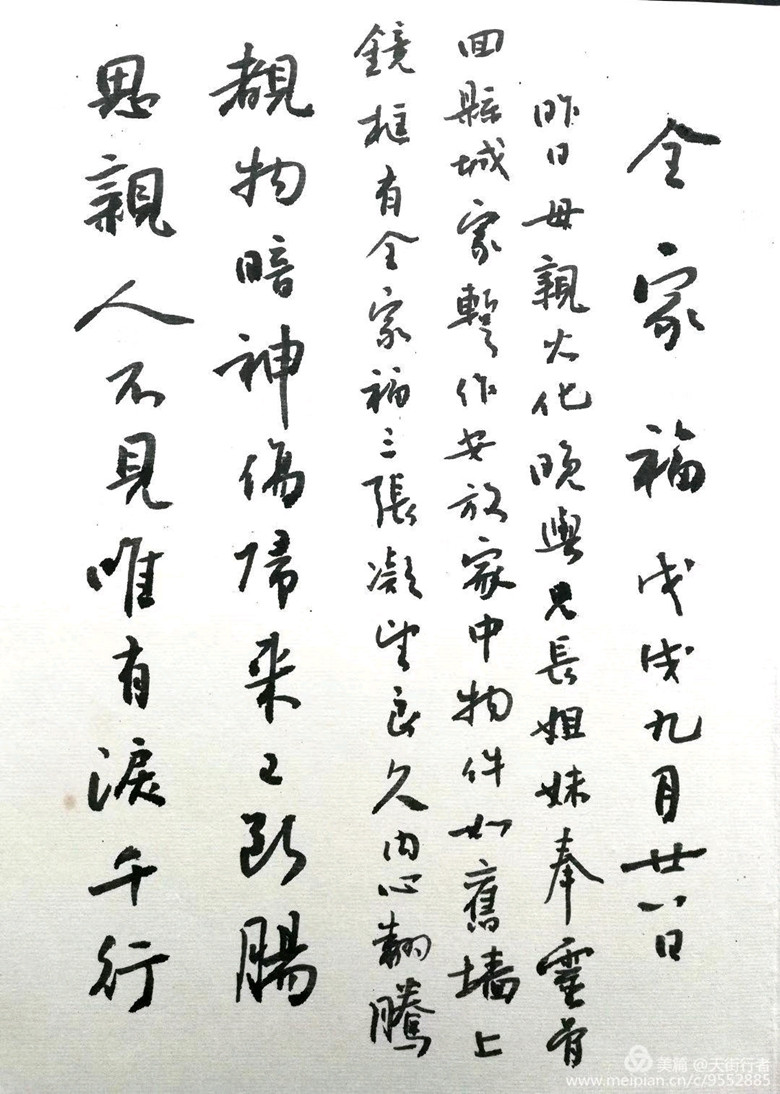 全家福 戊戌九月廿八日
昨日母親火化晚與兄長姐妹奉靈骨
回縣城家暫作安放家中物件如舊墻上
鏡框有全家福三張凝望良久内心翻騰
覩物暗神傷歸来已断腸
思親人不見唯有淚千行
美篇 @天街行者
www.meipian.cn/c/9552885